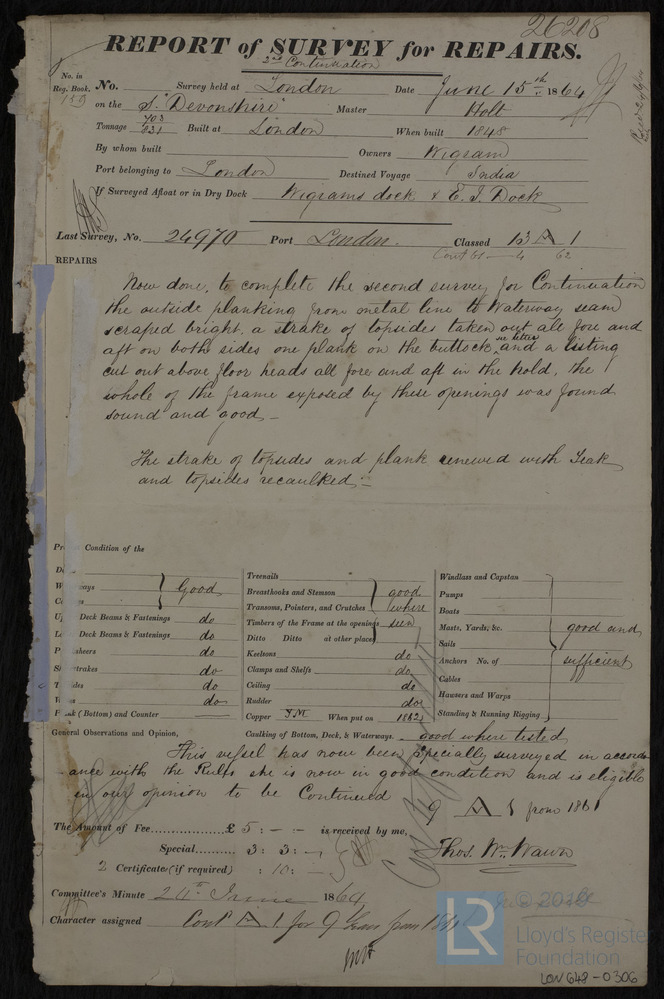 26208
REPORT of SURVEY for REPAIRS.
2nd Continuation
No. in Reg. Book. 159 No. Survey held at London Date June 15th 1864
on the S. "Devonshire" Master Holt
Tonnage 703 831 Built at London When built 1848
By whom built Owners Wigram
Port belonging to London Destined Voyage India
If Surveyed Afloat or in Dry Dock Wigrams dock & E. I. Dock
Last Survey, No. 24970 Port London. Classed 13 A 1
Cont 61 - 4 62
REPAIRS
Now done, to complete the second survey for Continuation
the outside planking from metal line to Waterway seam
scraped bright, a strake of topsides taken out all fore and
aft on both sides one plank on the buttock and a listing
cut out above floor heads all fore and aft in the hold, the
whole of the frame exposed by these openings was found
sound and good
The strake of topsides and plank renewed with Teak
and topsides recaulked
Condition of the
Good
Deck Beams & Fastenings do
Deck Beams & Fastenings do
sheers do
strakes do
do
do
(Bottom) and Counter
Treenails
Breasthooks and Stemson good
Transoms, Pointers, and Crutches where
Timbers of the Frame at the openings seen
Ditto Ditto at other places
Keelsons do
Clamps and Shelfs do
Ceiling do
Rudder do
Copper Y.M. When put on 1862
Windlass and Capstan
Pumps
Boats
Masts, Yards, &c. good and
Sails
Anchors No. of sufficient
Cables
Hawsers and Warps
Standing & Running Rigging
General Observations and Opinion, Caulking of Bottom, Deck, & Waterways. good where tested
This vessel has now been specially surveyed in accord-
ance with the Rules she is now in good condition and is eligible
in our opinion to be Continued
9 A 1 from 1861
The Amount of Fee £ 5 : - : - is received by me,
Special 3 : 3 : - Thos. Wm. Wawn
2 Certificate (if required) : 10 : -
Committee's Minute 24th June 1864
Character assigned Cont A 1 for 9 Years from 1861
LR © 2019
Lloyd's Register
Foundation
LON648-0306